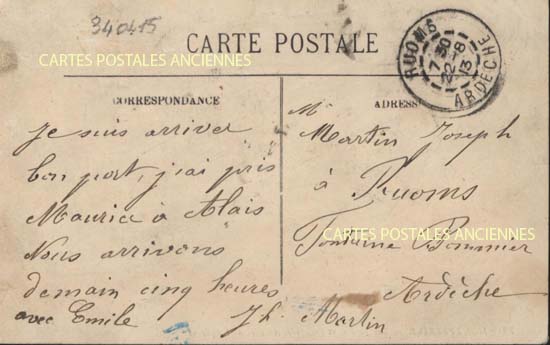 340415
CARTE POSTALE
CARTES POSTALES ANCIENNES
RUOMS
7 30
22 -8
13
ARDÈCHE
CORRESPONDANCE
Je suis arriver
bon port, j'ai pris
Maurice à Alais
Nous arrivons
demain cinq heures
avec Emile
Jh. Martin
ADRESS
Mr
Martin Joseph
à Ruoms
Fontaine Pommier
CARTES POSTALES ANCIENNES
Ardèche